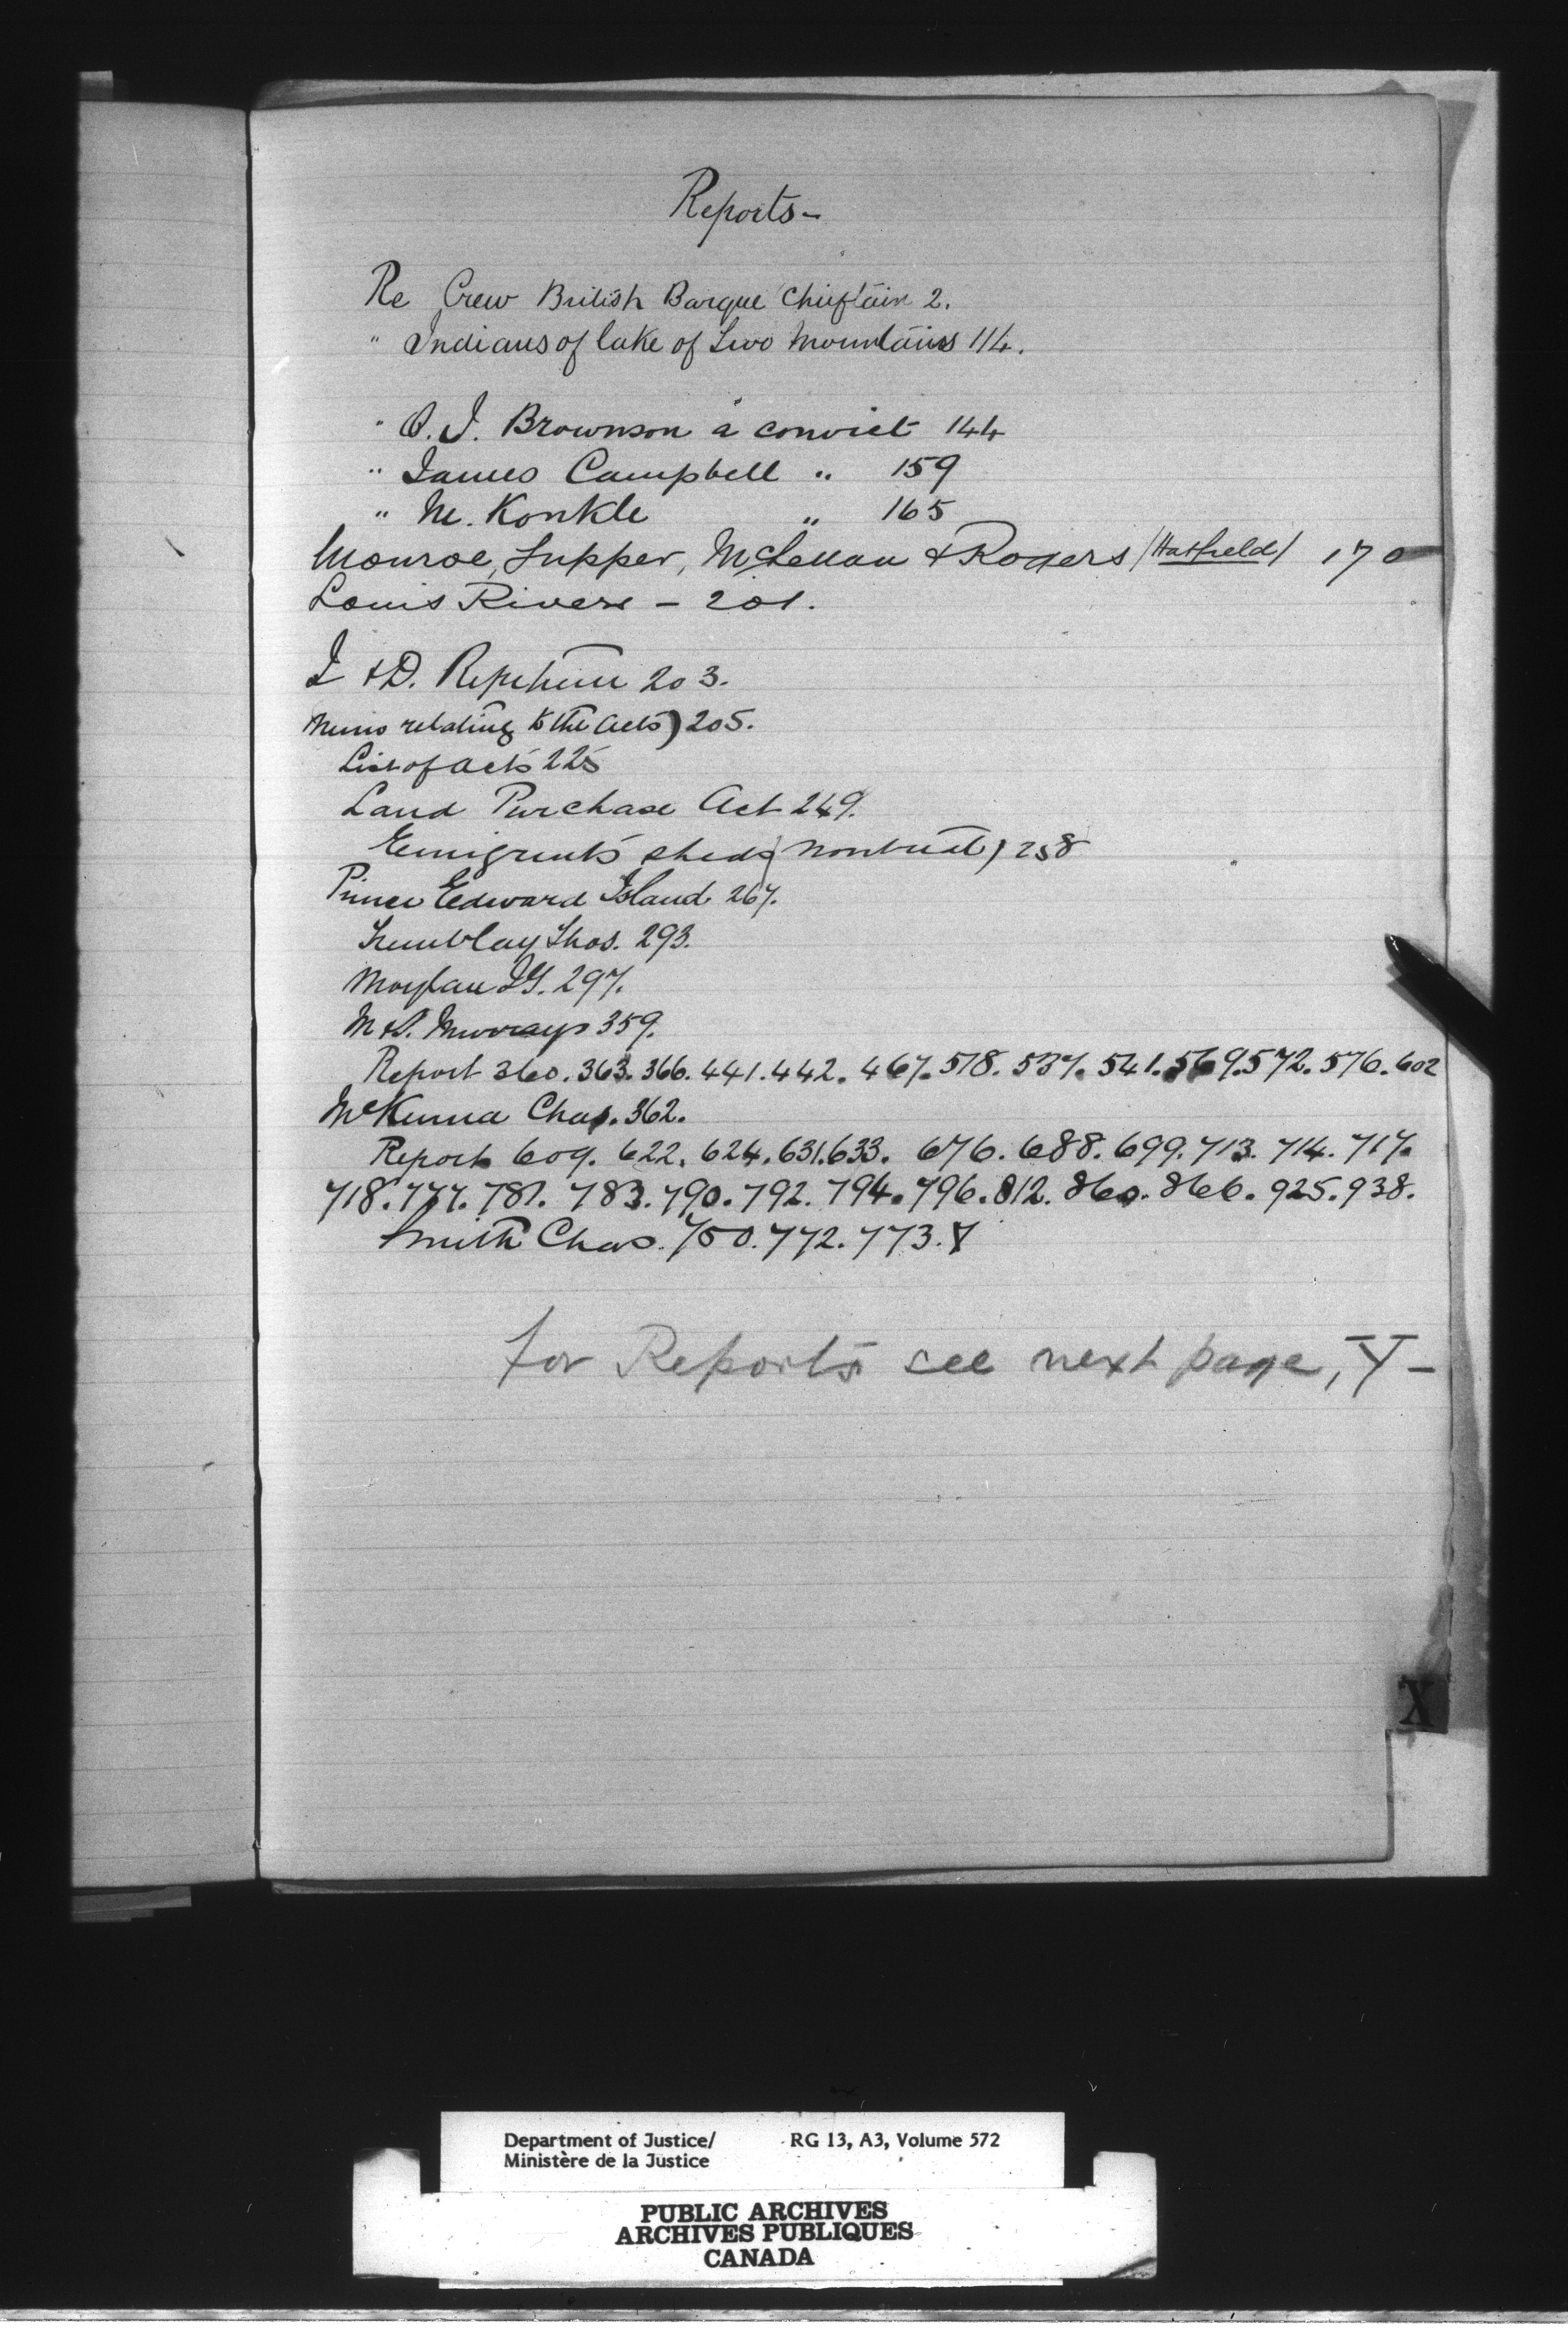 Reports -
Re Crew British Barque Chieftain 2.
" Indians of lake of Two Mountains 114.
" O. J. Brownson a convict 144
" James Campbell " 159
" M. Konkle " 165
Monroe, Supper, McLellan & Rogers /Hatfield/ 170
Louis Riviere - 201.
I & D. 203.
Memo relating to the Acts) 205.
List of acts 225
Land Purchase Act 249.
Emigrants sheds (Montreal) 258
Prince Edward Island 267.
Tremblay Thos. 293.
Moylan J.G. 297.
M & S. Murrays 359.
Report 360. 363. 366. 441. 442. 467. 518. 537. 541. 569. 572. 576. 602
McKenna Chas. 362.
Reports 609. 622. 624. 631. 633. 676. 688. 699. 713. 714. 717.
718. 777. 781. 783. 790. 792. 794. 796. 812. 860. 866. 925. 938.
Smith Chas. 750. 772. 773. Y
for Reports see next page, Y -
X
Department of Justice/ RG 13, A3, Volume 572
Ministère de la Justice
PUBLIC ARCHIVES
ARCHIVES PUBLIQUES
CANADA